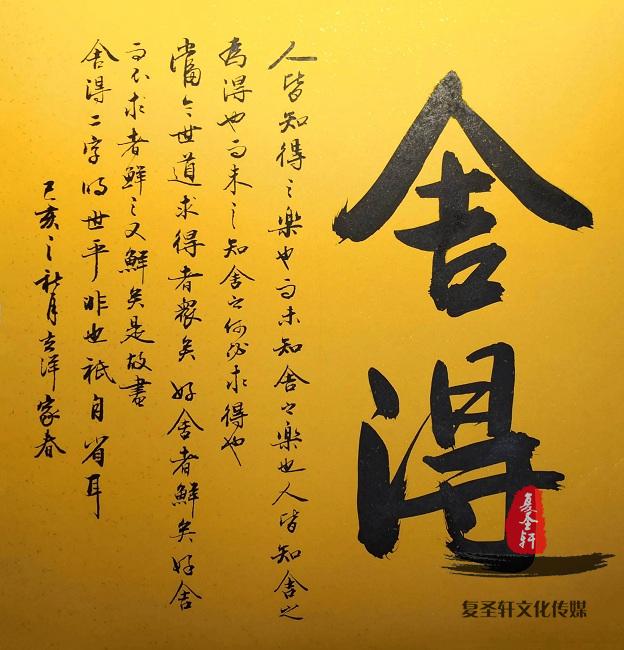 舍得
人皆知得之樂也而未知舍之樂也人皆知舍之
為得也而未之知舍之何必求得也
當今世道求得者衆矣好舍者鮮矣好舍
而不求者鮮之又鮮矣是故書
舍得二字明世乎非也祇自省耳
己亥之秋月志洋家春
复圣轩
复圣轩文化传媒